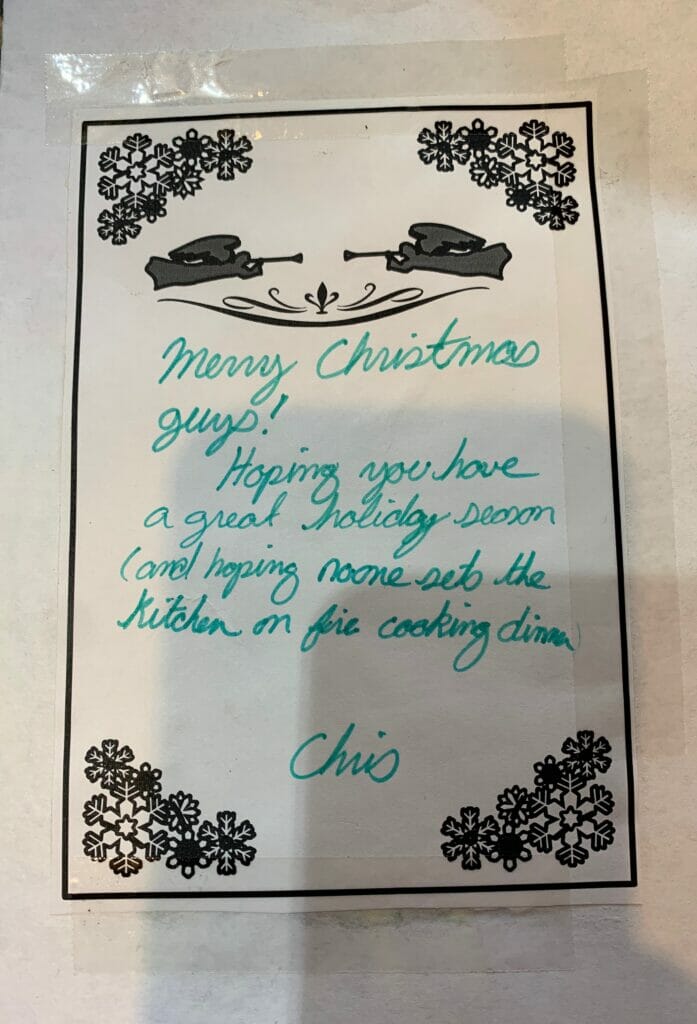 Merry Christmas
guys!
Hoping you have
a great holiday season
(and hoping noone sets the
kitchen on fire cooking dinner)
Chris